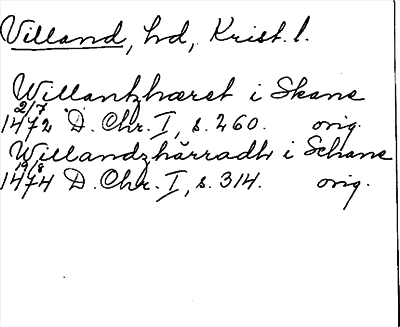 Villand, hd, Krist. l.
Willantzhæret i Skane
2/7
1472 D. Chr. I, s. 260. orig.
Willandzhärradh i Schane
19/8
1474 D. Chr. I, s. 314. orig.